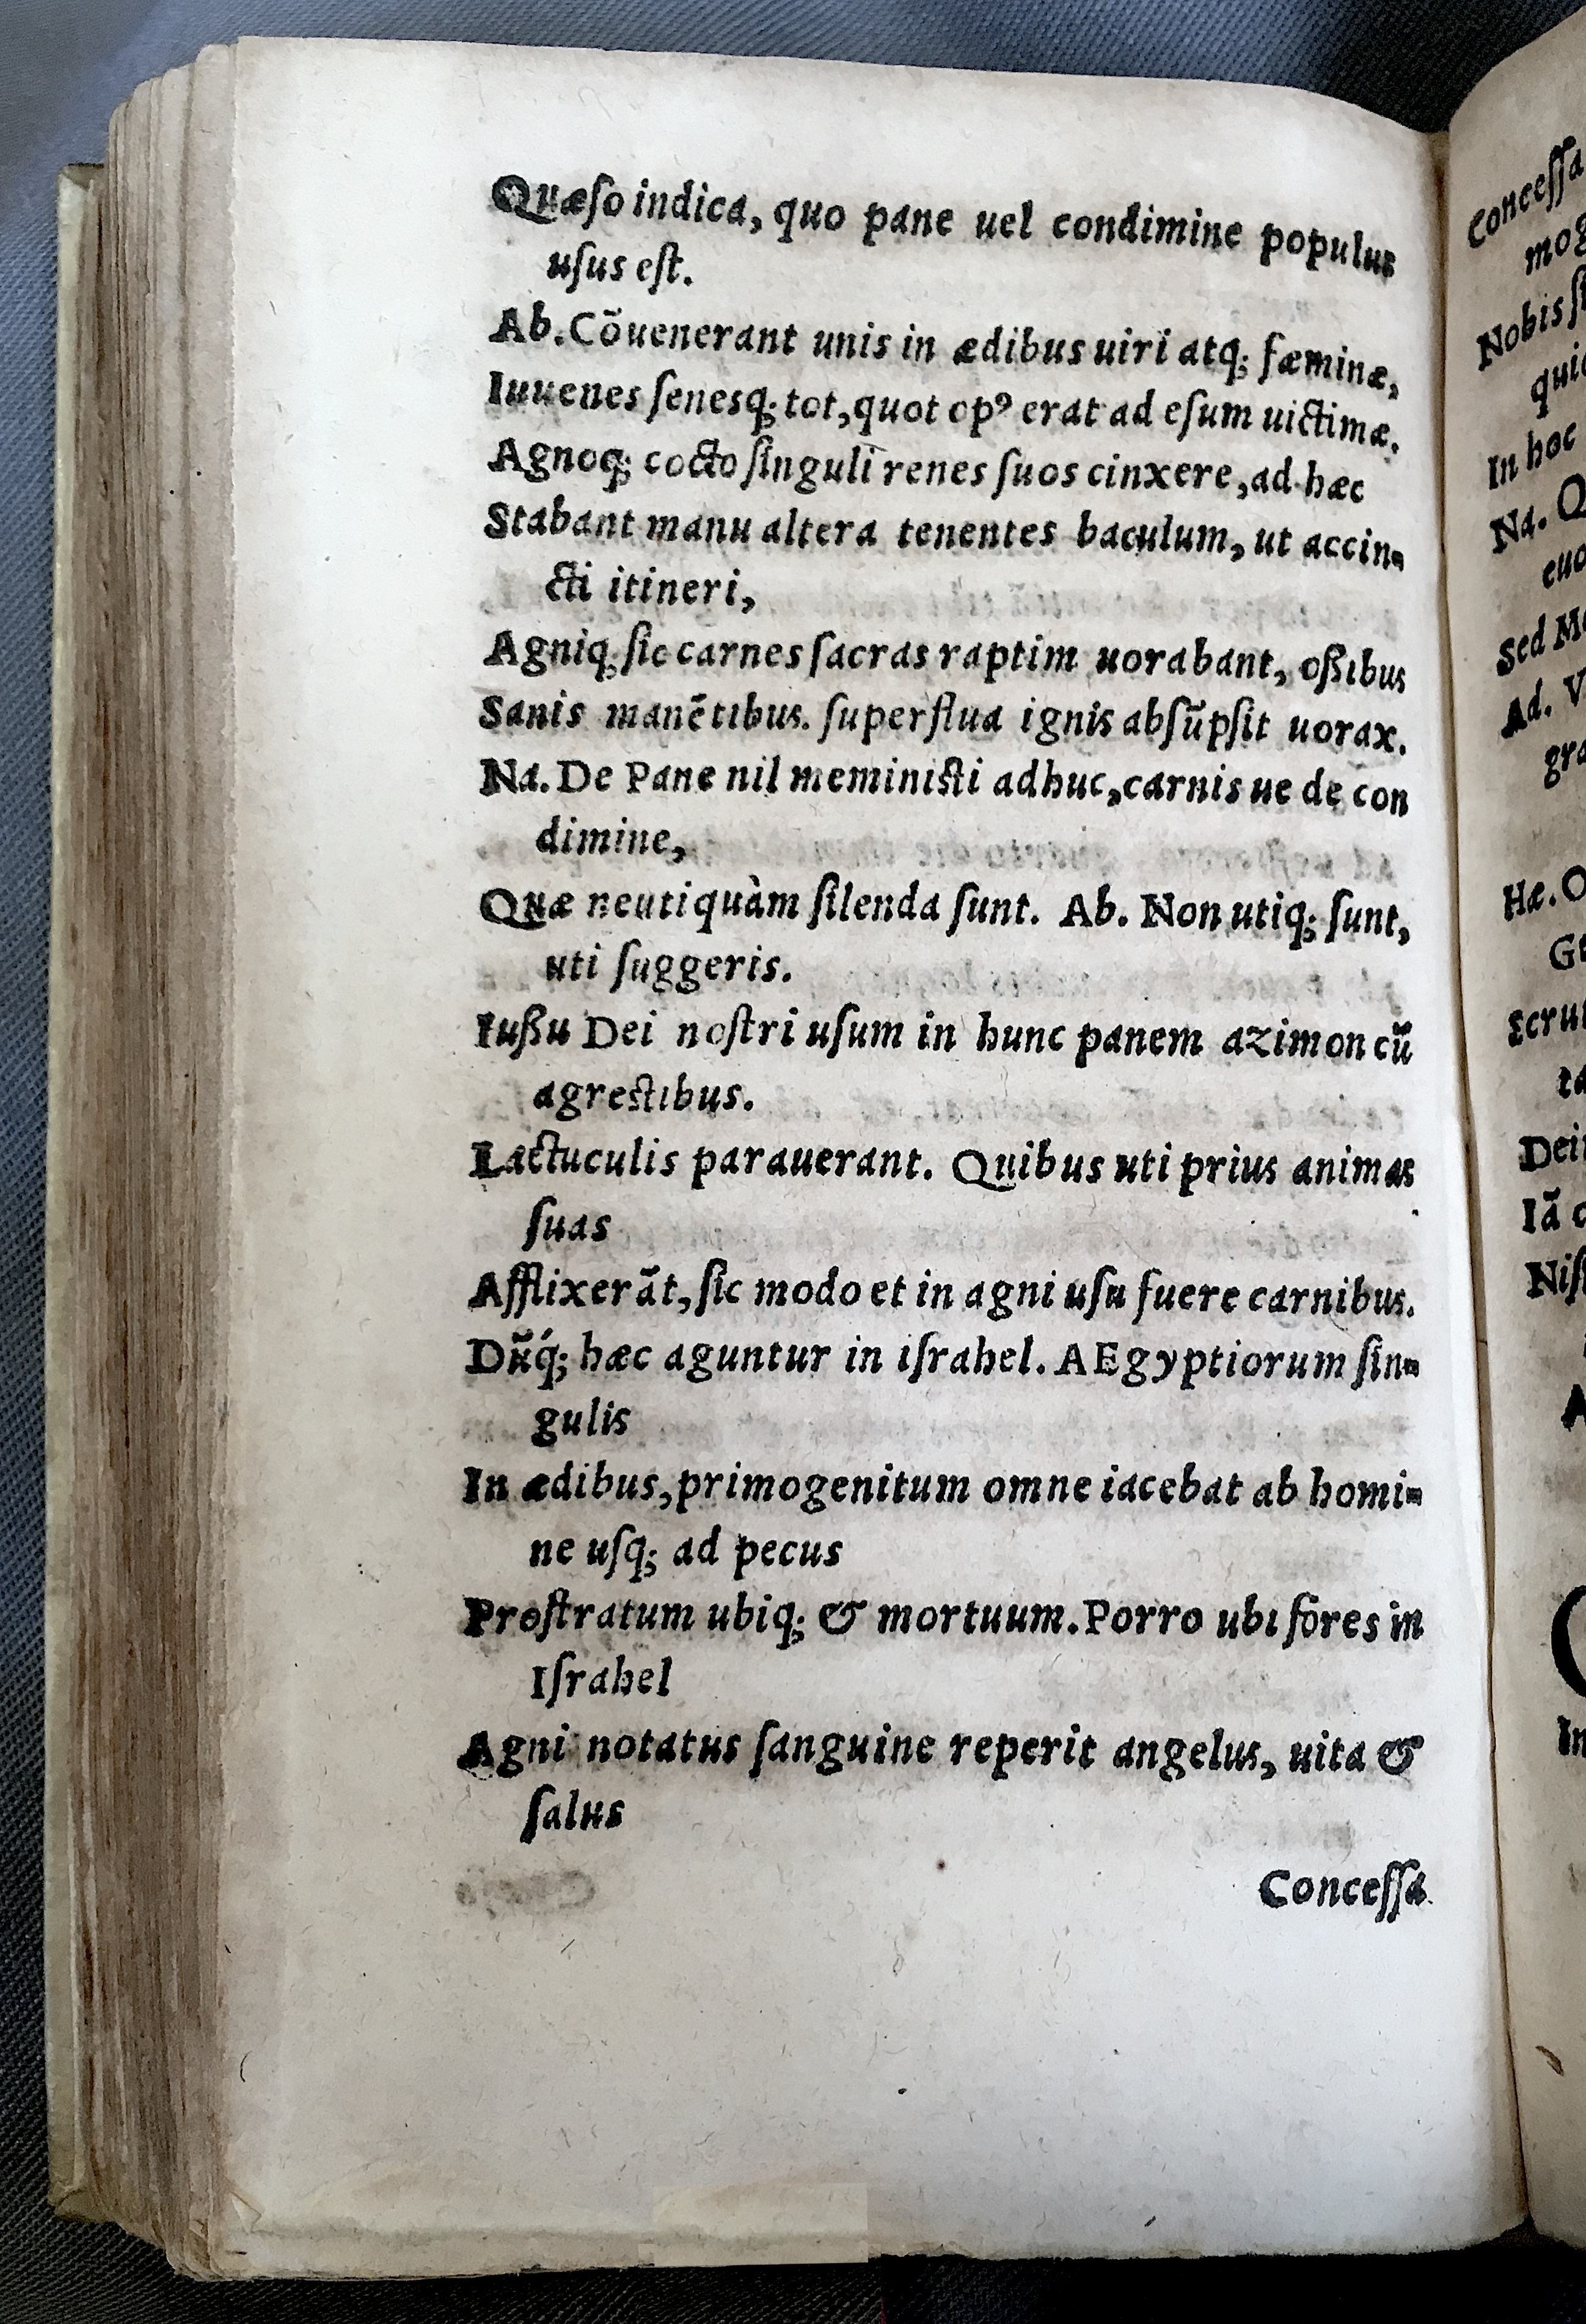 Quæſo indica, quo pane uel condimine populus
uſus eſt.
Ab. Cõuenerant unis in ædibus uiri atq; fæminæ,
Iuuenes ſenesq; tot, quot opꝰ erat ad eſum uictimæ.
Agnoq; cocto ſinguli renes ſuos cinxere, ad hæc
Stabant manu altera tenentes baculum, ut accin-
cti itineri,
Agniq; ſic carnes ſacras raptim uorabant, oßibus
Sanis manẽtibus. ſuperflua ignis abſũpſit uorax.
Na. De Pane nil meminiſti adhuc, carnis ue de con
dimine,
Quæ neutiquàm ſilenda ſunt. Ab. Non utiq; ſunt,
uti ſuggeris.
Iußu Dei noſtri uſum in hunc panem azimon cũ
agreſtibus.
Lactuculis parauerant. Quibus uti prius animas
ſuas
Afflixerãt, ſic modo et in agni uſu fuere carnibus.
Dũq́; hæc aguntur in iſrahel. AEgyptiorum ſin-
gulis
In ædibus, primogenitum omne iacebat ab homi-
ne uſq; ad pecus
Proſtratum ubiq; & mortuum. Porro ubi fores in
Iſrahel
Agni notatus ſanguine reperit angelus, uita &
ſalus
Conceſſa
Conceſſa
mog
Nobis ſi
quic
In hoc
Na. Q
euo
Sed Mo
Ad. V
gra
Hæ. O
Gr
Scru
ta
Dei
Iã c
Niſ
A
In